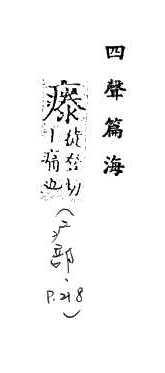 四聲篇海
徒登切
丨痛也
(疒部、
P.218)